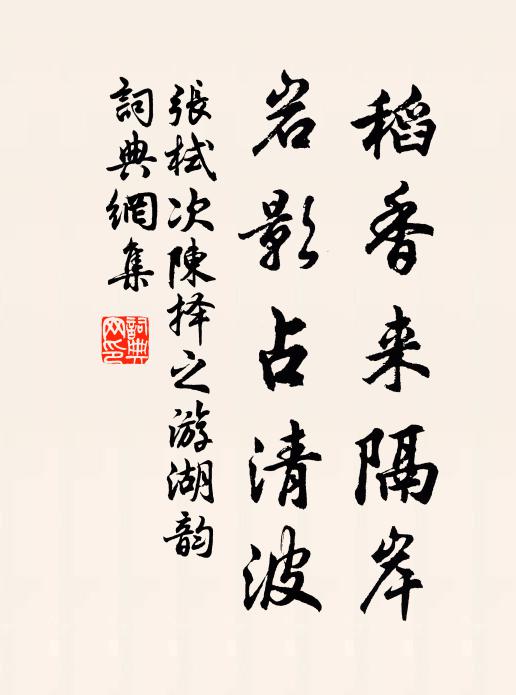 稻香来隔岸
岩影占清波
張栻次陳择之游湖韵
詞典網集
詞典网印